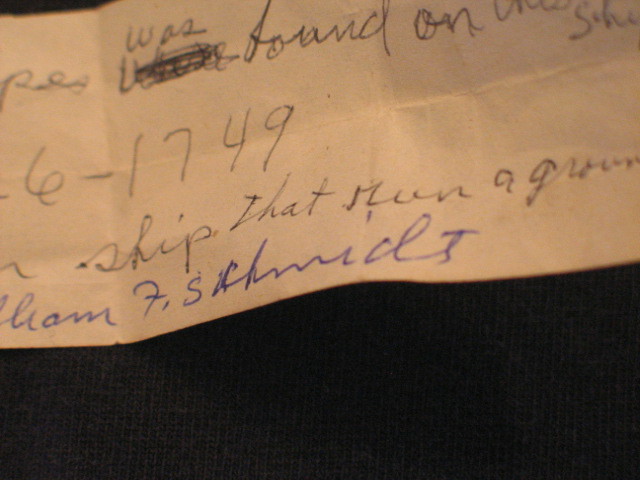 was
pes found on this ship
-6-1749
n ship that run a groun
lliam F. Schmidt